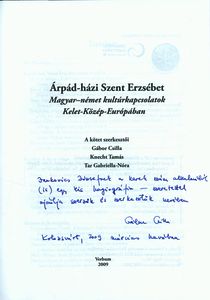 Árpád-házi Szent Erzsébet
Magyar–német kultúrkapcsolatok
Kelet-Közép-Európában
A kötet szerkesztői
Gábor Csilla
Knecht Tamás
Tar Gabriella-Nóra
Jankovics Józsefnek a kerek szám alkalmából
(is) egy kis hagiográfia — szeretettel
ajánlja szerzők és szerkesztők nevében
Gábor Csilla
Kolozsvárt, 2009 március havában
Verbum
2009